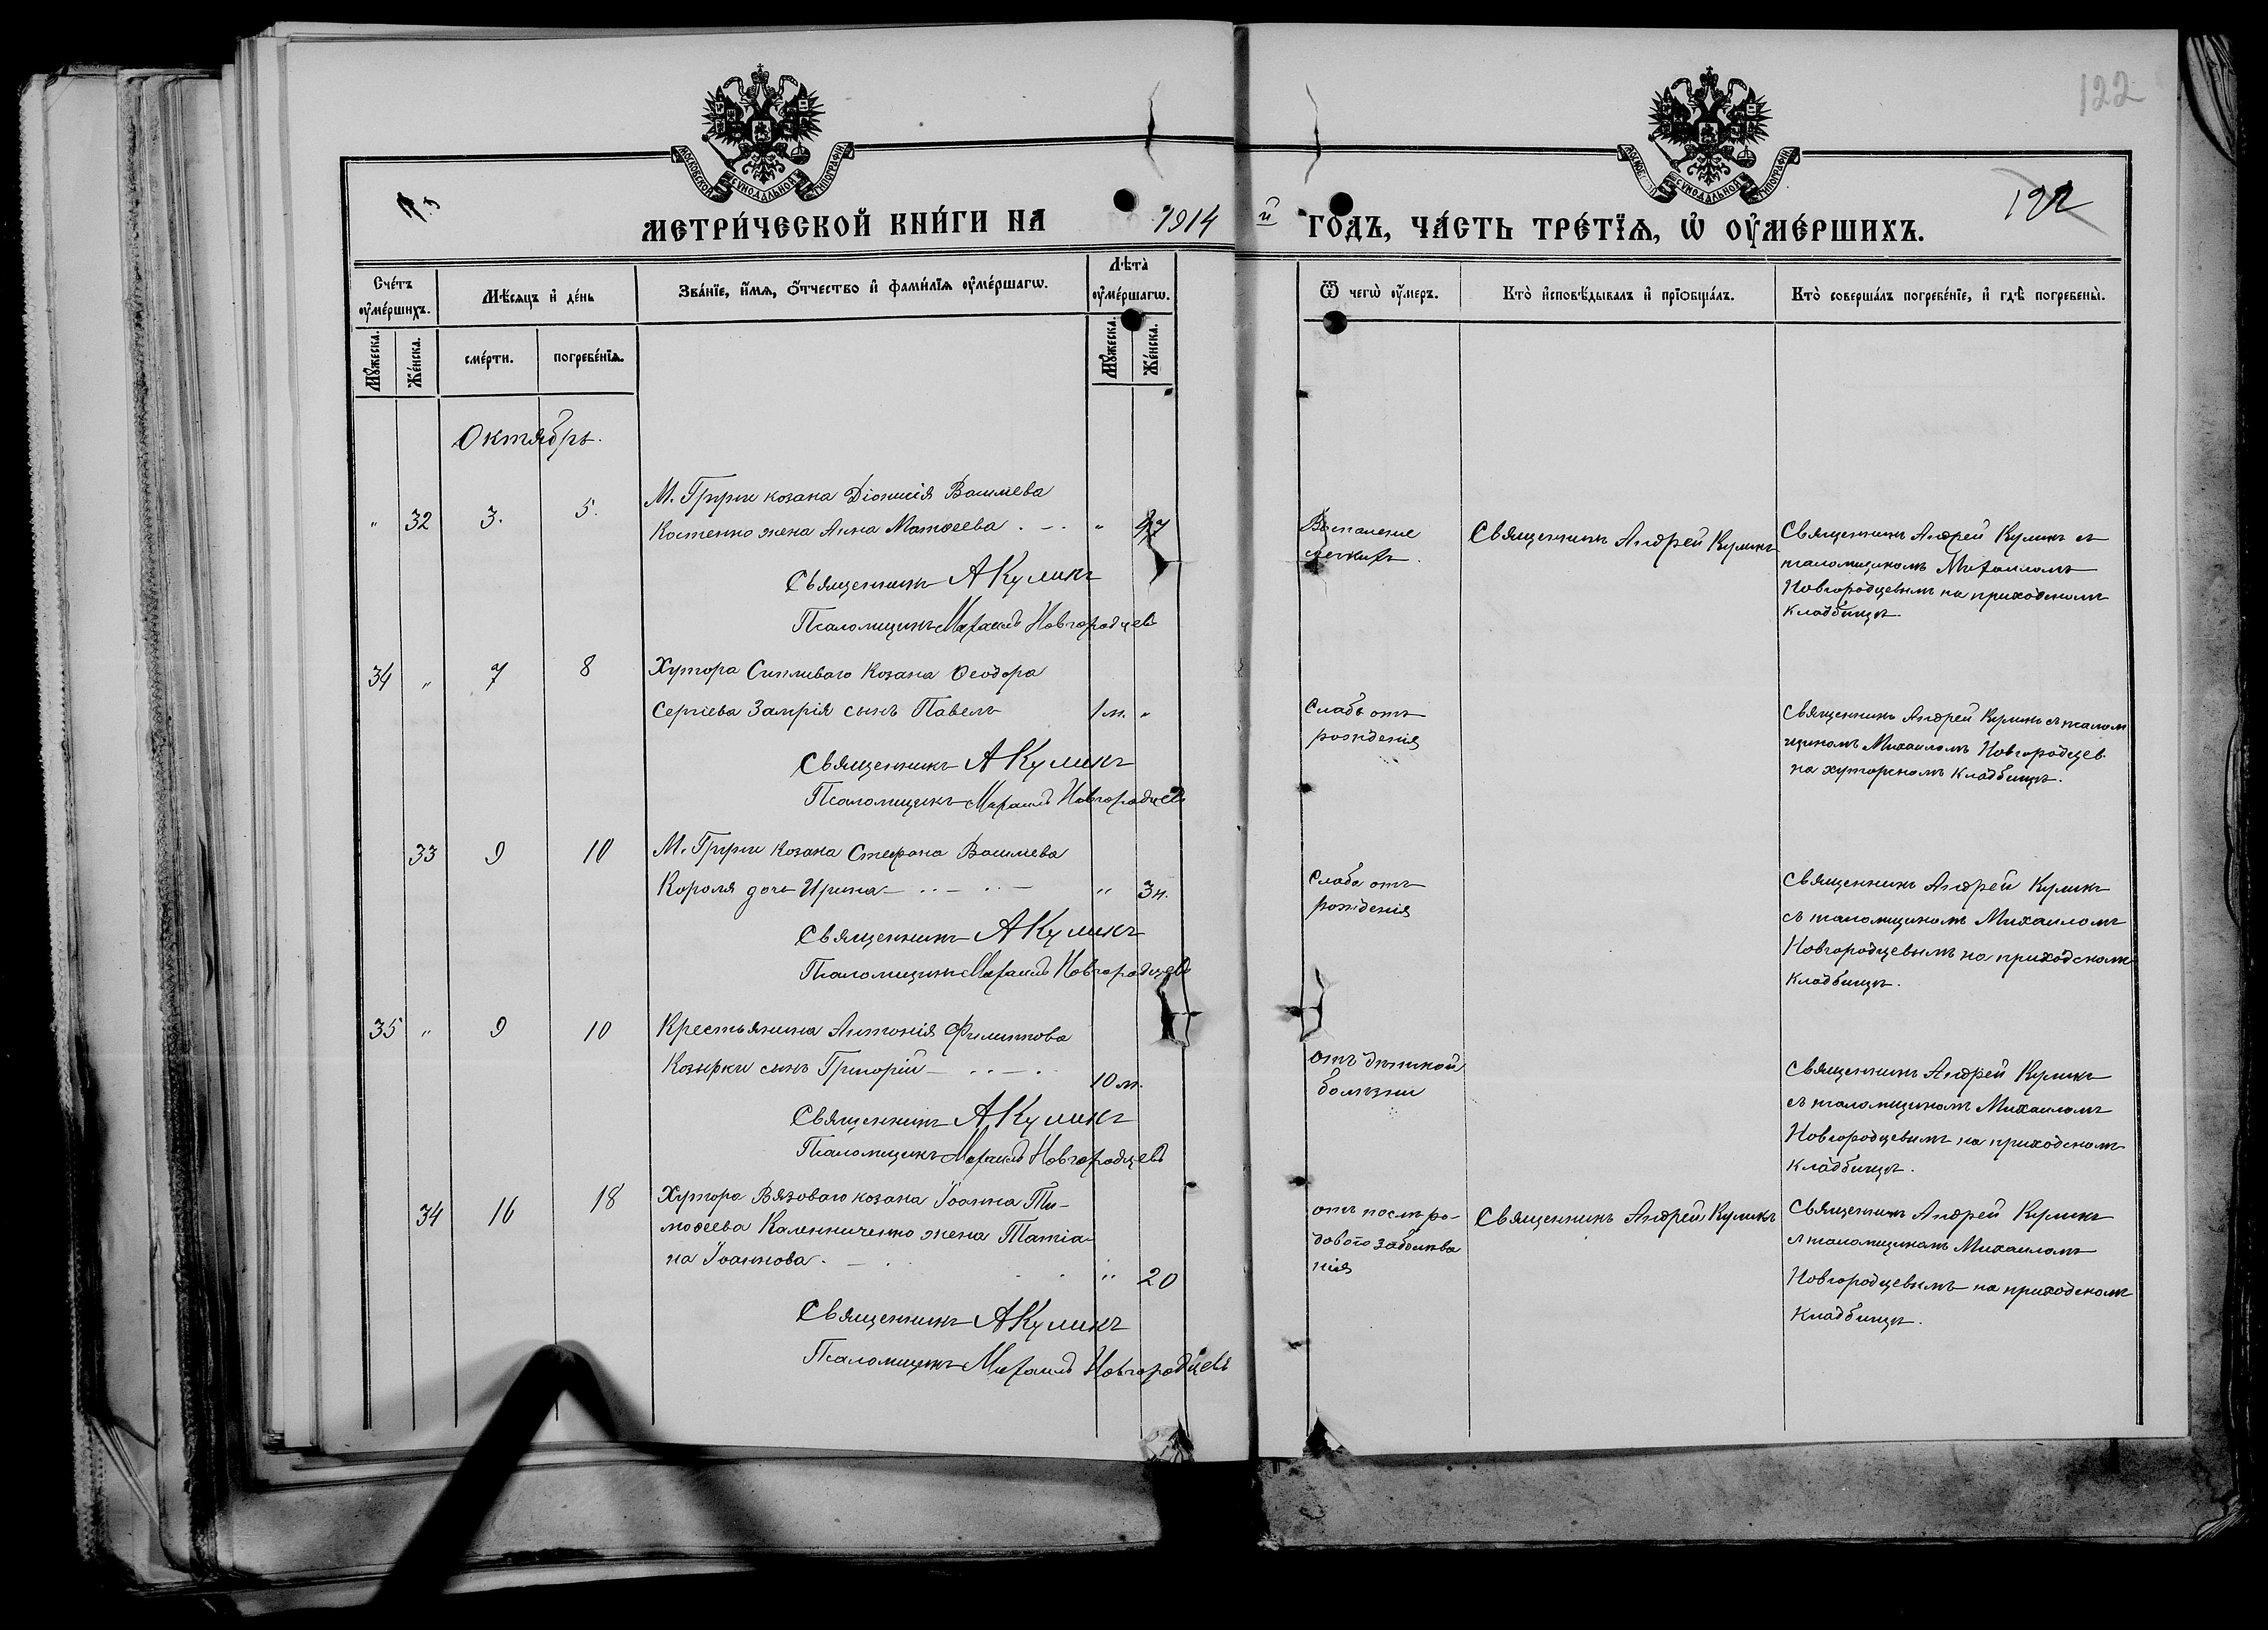 122
МОСКОВСКОЙ СѴНОДАЛЬНОЙ ТИПОГРАФІИ
МОСКОВСКОЙ СѴНОДАЛЬНОЙ ТИПОГРАФІИ
122
МЕТРИ́ЧЕСКОЙ КНИ́ГИ НА 1914 й ГОДЪ, ЧА́СТЬ ТРЕ́ТЇѦ, Ѽ ОУ҆МЕ́РШИХЪ.
Сче́тъ оу҆ме́ршихъ.
Мѣ́сѧцъ и҆ де́нь
Зва́нїе, и҆́мѧ, ѻ҆́тчество и҆ фами́лїѧ оу҆ме́ршагѡ.
Лѣта̀ оу҆ме́ршагѡ.
Ѿ чегѡ̀ оу҆́меръ.
Кто̀ и҆сповѣ́дывалъ и҆ прїѡбща́лъ.
Кто̀ соверша́лъ погребе́нїе, и҆ гдѣ̀ погребены̀.
Мꙋ́жеска.
Же́нска.
сме́рти.
погребе́нїѧ.
Мꙋ́жеска.
Же́нска.
Октябрь.
" 32 3. 5.
М. Груни козака Діонисія Васильева
Костенко жена Анна Матѳеева " 47
Священникъ АКуликъ
Псаломщикъ Михаилъ Новгородцевъ
Воспаленіе
легкихъ.
Священникъ Андрей Куликъ
Священникъ Андрей Куликъ съ
псаломщикомъ Михаиломъ
Новгородцевымъ на приходскомъ
кладбищѣ.
34 " 7 8
Хутора Сипливаго козака Ѳеодора
Сергіева Замрія сынъ Павелъ 1 м. "
Священникъ АКуликъ
Псаломщикъ Михаилъ Новгородцевъ
Слабъ отъ
рожденія
Священникъ Андрей Куликъ съ псалом
щикомъ Михаиломъ Новгородцев.
на хуторскомъ кладбищѣ.
33 9 10
М. Груни козака Стефана Васильева
Короля дочь Ирина " 3 н.
Священникъ АКуликъ
Псаломщикъ Михаилъ Новгородцевъ
Слаба отъ
рожденія
Священникъ Андрей Куликъ
съ псаломщикомъ Михаиломъ
Новгородцевымъ на приходскомъ
кладбищѣ.
35 " 9 10
Крестьянина Антонія Филиппова
Козырки сынъ Григорій 10 м.
Священникъ АКуликъ
Псаломщикъ Михаилъ Новгородцевъ
отъ дѣтской
болѣзни
Священникъ Андрей Куликъ
съ псаломщикомъ Михаиломъ
Новгородцевымъ на приходскомъ
кладбищѣ.
34 16 18
Хутора Вязоваго козака Іоанна Ти-
моѳеева Калениченко жена Татіа-
на Іоаннова. " 20
Священникъ АКуликъ
Псаломщикъ Михаилъ Новгородцевъ
отъ послѣ ро-
доваго заболѣва
нія
Священникъ Андрей Куликъ
Священникъ Андрей Куликъ
съ псаломщикомъ Михаиломъ
Новгородцевымъ на приходскомъ
кладбищѣ.